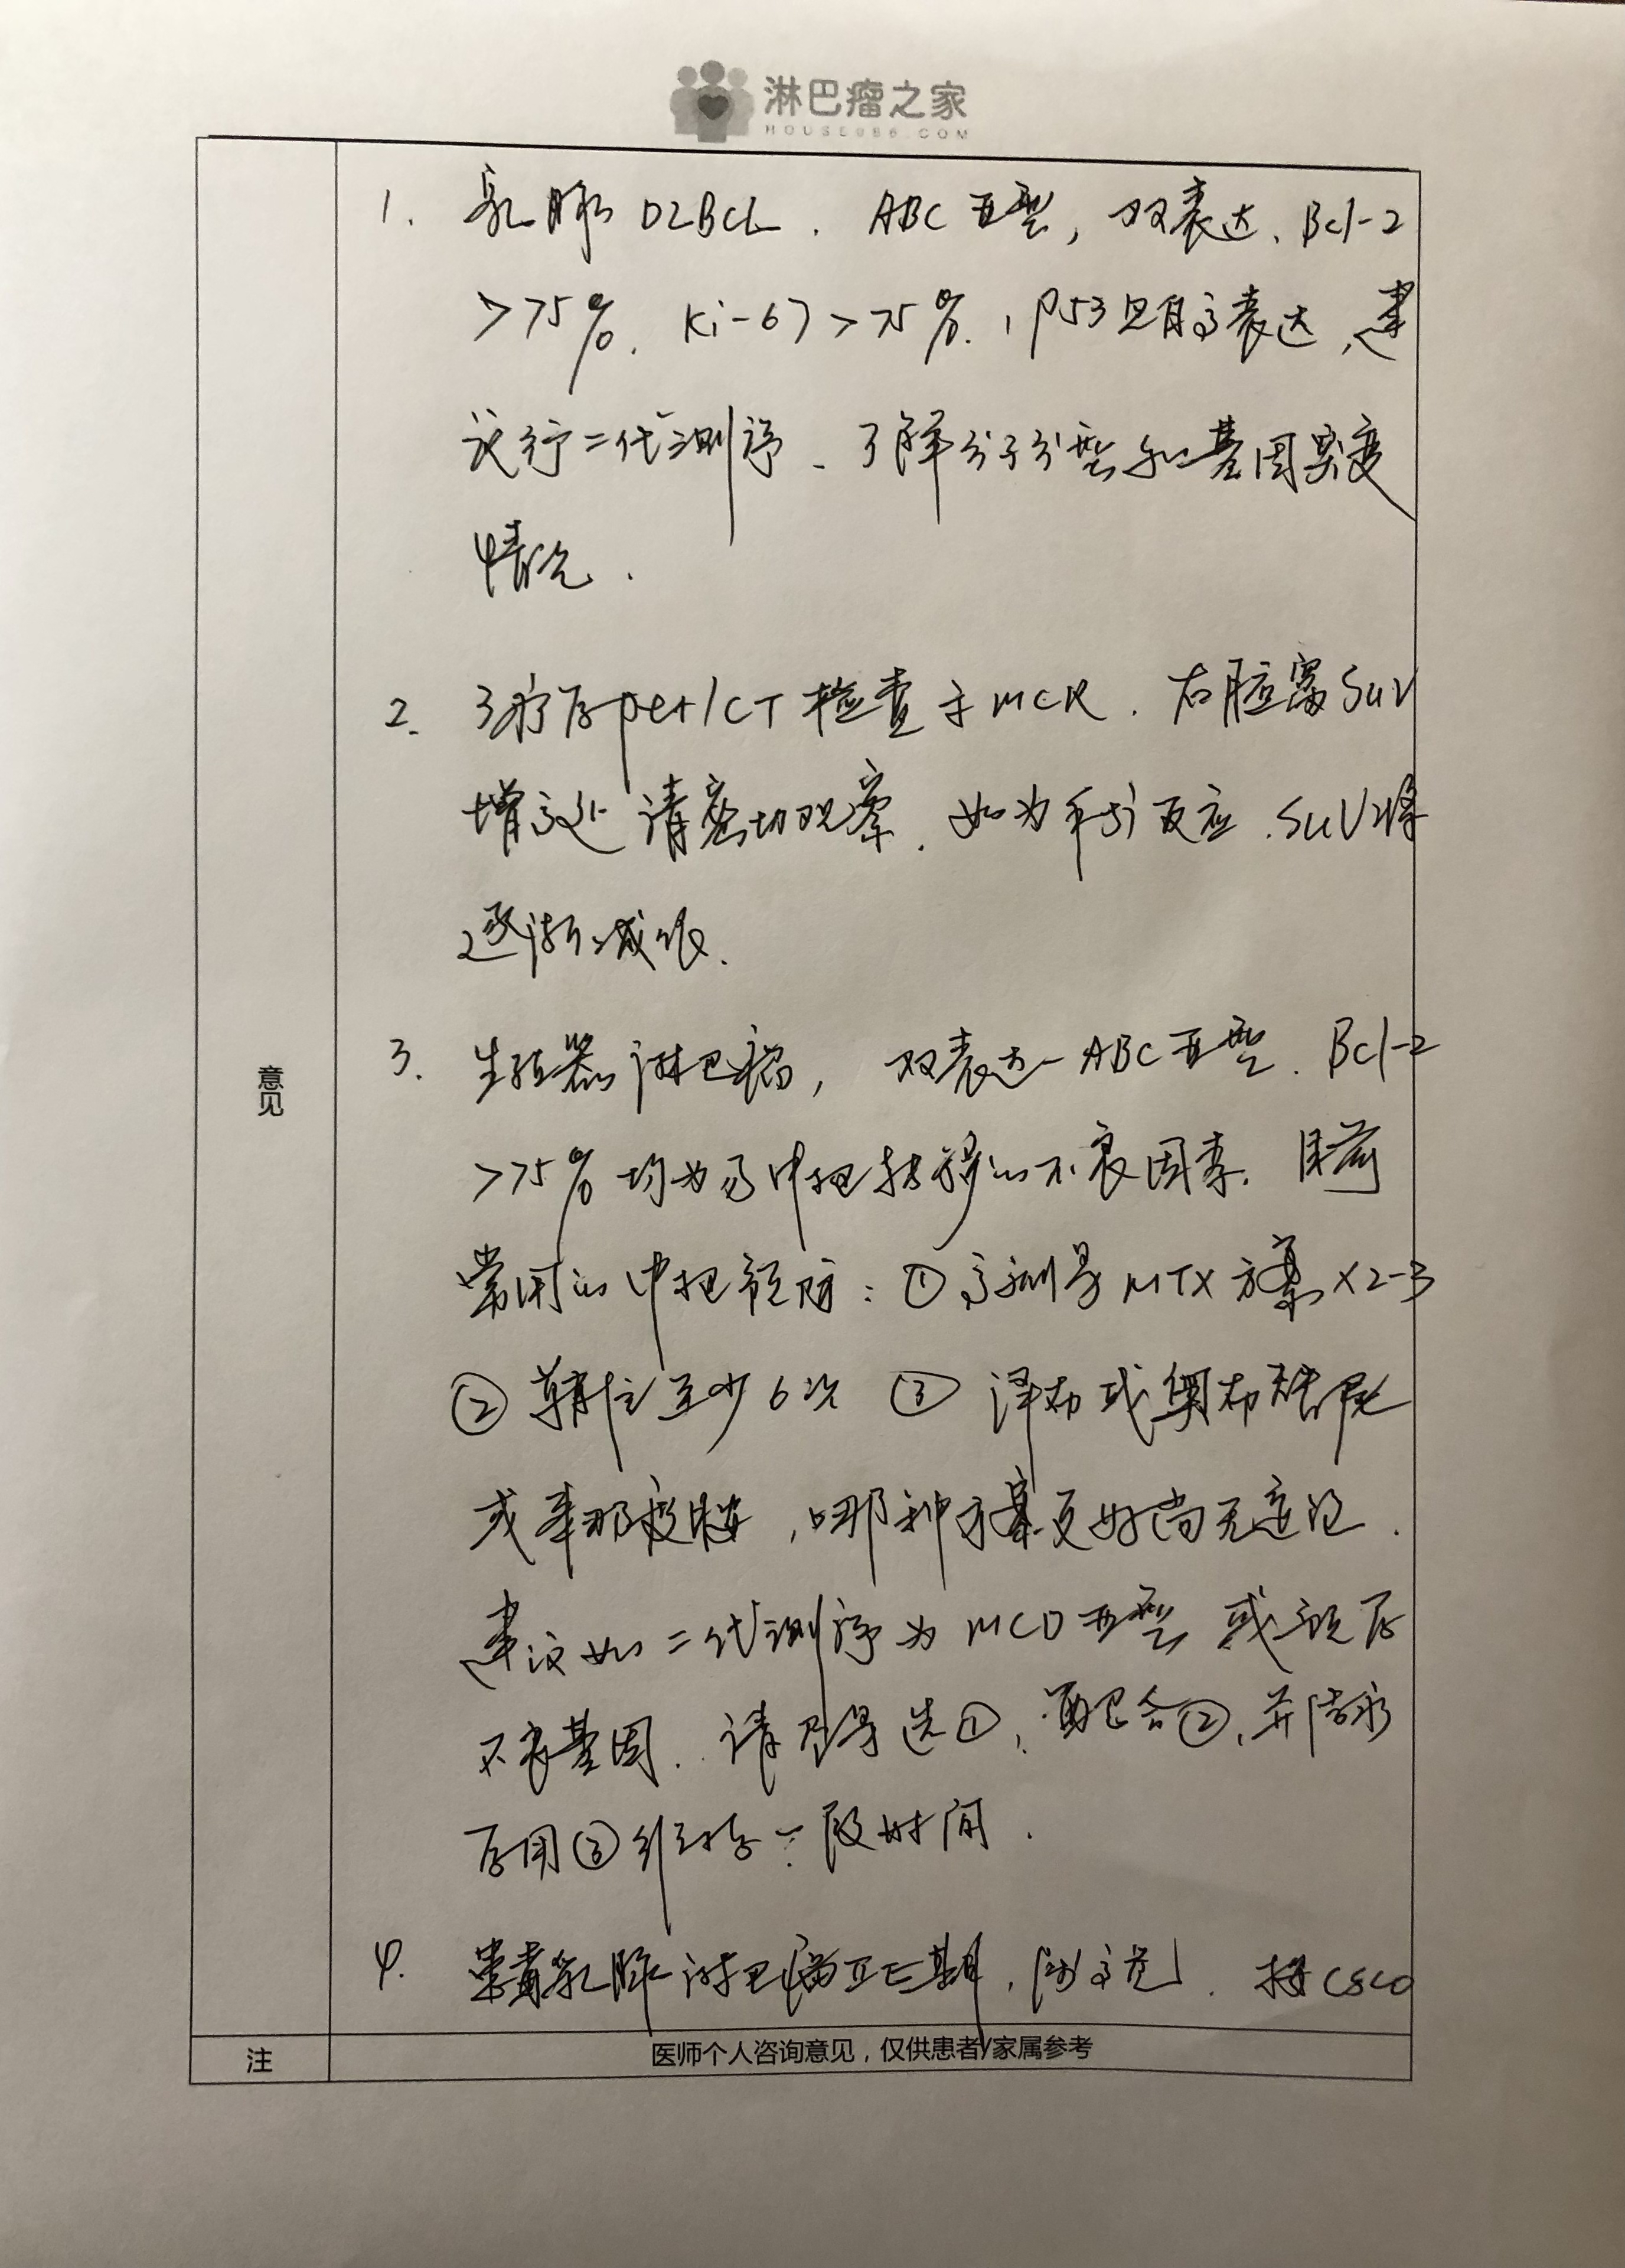 淋巴瘤之家
HOUSE086.COM
1. 乳腺DLBCL. ABC亚型, 双表达、Bcl-2
>75%. Ki-67>75%., P53 高表达, 建
议行二代测序、了解分子分型和基因突变
情况.
2. 3疗后pet/CT检查于MCR. 右腋窝SUV
增高处请密切观察. 如为手术反应. SUV将
逐渐减低.
意见
3. 生殖器淋巴瘤, 双表达-ABC亚型. Bcl-2
>75%均为易中枢转移的不良因素. 目前
常用的中枢预防: ①高剂量MTX方案×2-3
②鞘注至少6次 ③泽布或奥布替尼
或来那度胺, 哪种方案更好尚无定论.
建议如二代测序为MCD亚型或预后
不良基因. 请尽量选①, 配合②, 并
后用③维持一段时间.
4. 乳腺淋巴瘤ⅡE期, . 按CSCO
注
医师个人咨询意见，仅供患者/家属参考